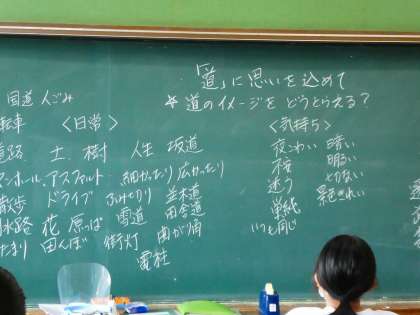 「道」に思いを込めて
☆ 道のイメージを どうとらえる？
国道 人ごみ
転車 〈日常〉
道路 土、樹 人生 坂道
マンホール、アスファルト 細かったり 広かったり
散歩 ドライブ ふみきり 並木道
水路 花 原っぱ 雪道 田舎道
たまり 田んぼ 街灯 曲がり角
電柱
〈気持ち〉
夜こわい 暗い
不安 明るい
迷う
単純 景色きれい
いつも同じ